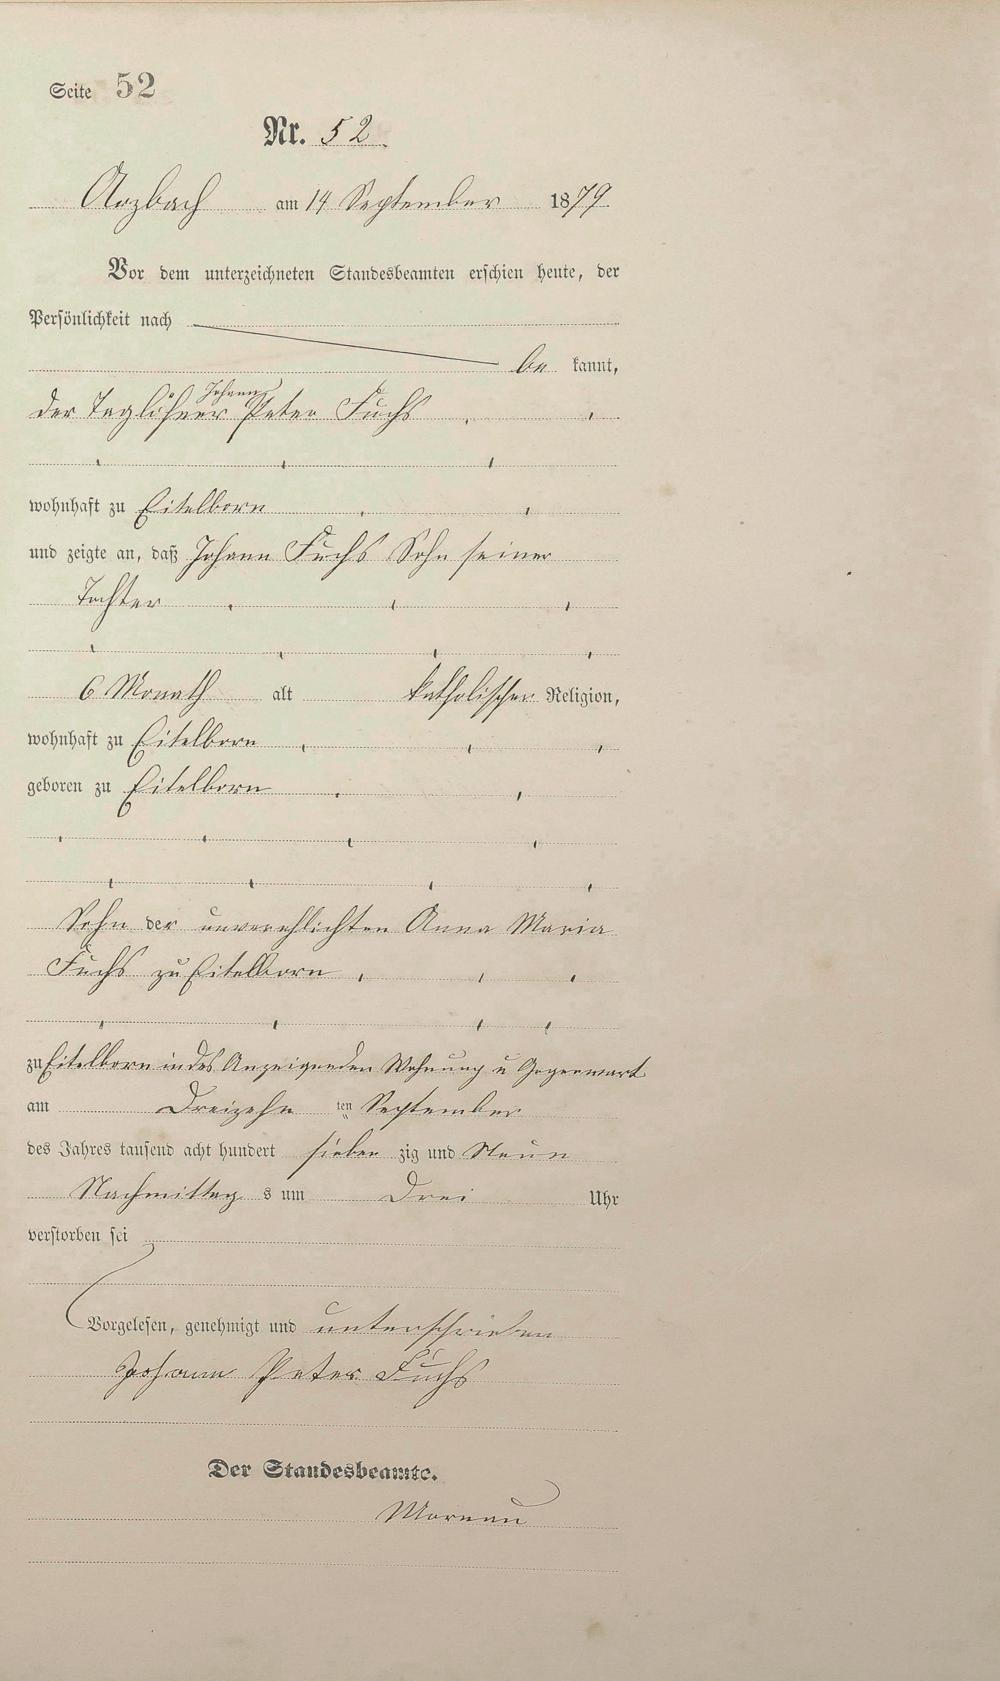 Seite 52
Nr. 52.
Arzbach am 14 September 1879
Vor dem unterzeichneten Standesbeamten erschien heute, der
Persönlichkeit nach
be kannt,
Johann
der Taglöhner Peter Fuchs
wohnhaft zu Eitelborn
und zeigte an, daß Johann Fuchs Sohn seiner
Tochter
6 Monath alt katholischer Religion,
wohnhaft zu Eitelborn
geboren zu Eitelborn
Sohn der unverehlichten Anna Maria
Fuchs zu Eitelborn
zu Eitelborn in des Anzeigenden Wohnung u Gegenwart
am Dreizehn ten September
des Jahres tausend acht hundert sieben zig und Neun
Nachmittag s um Drei Uhr
verstorben sei
Vorgelesen, genehmigt und unterschrieben
Johann Peter Fuchs
Der Standesbeamte.